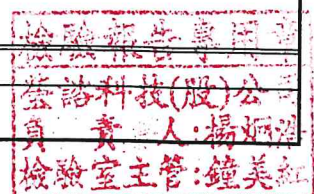 檢驗報告專用章
科技(股)公司
負責人:楊
檢驗室主管:鐘美紅